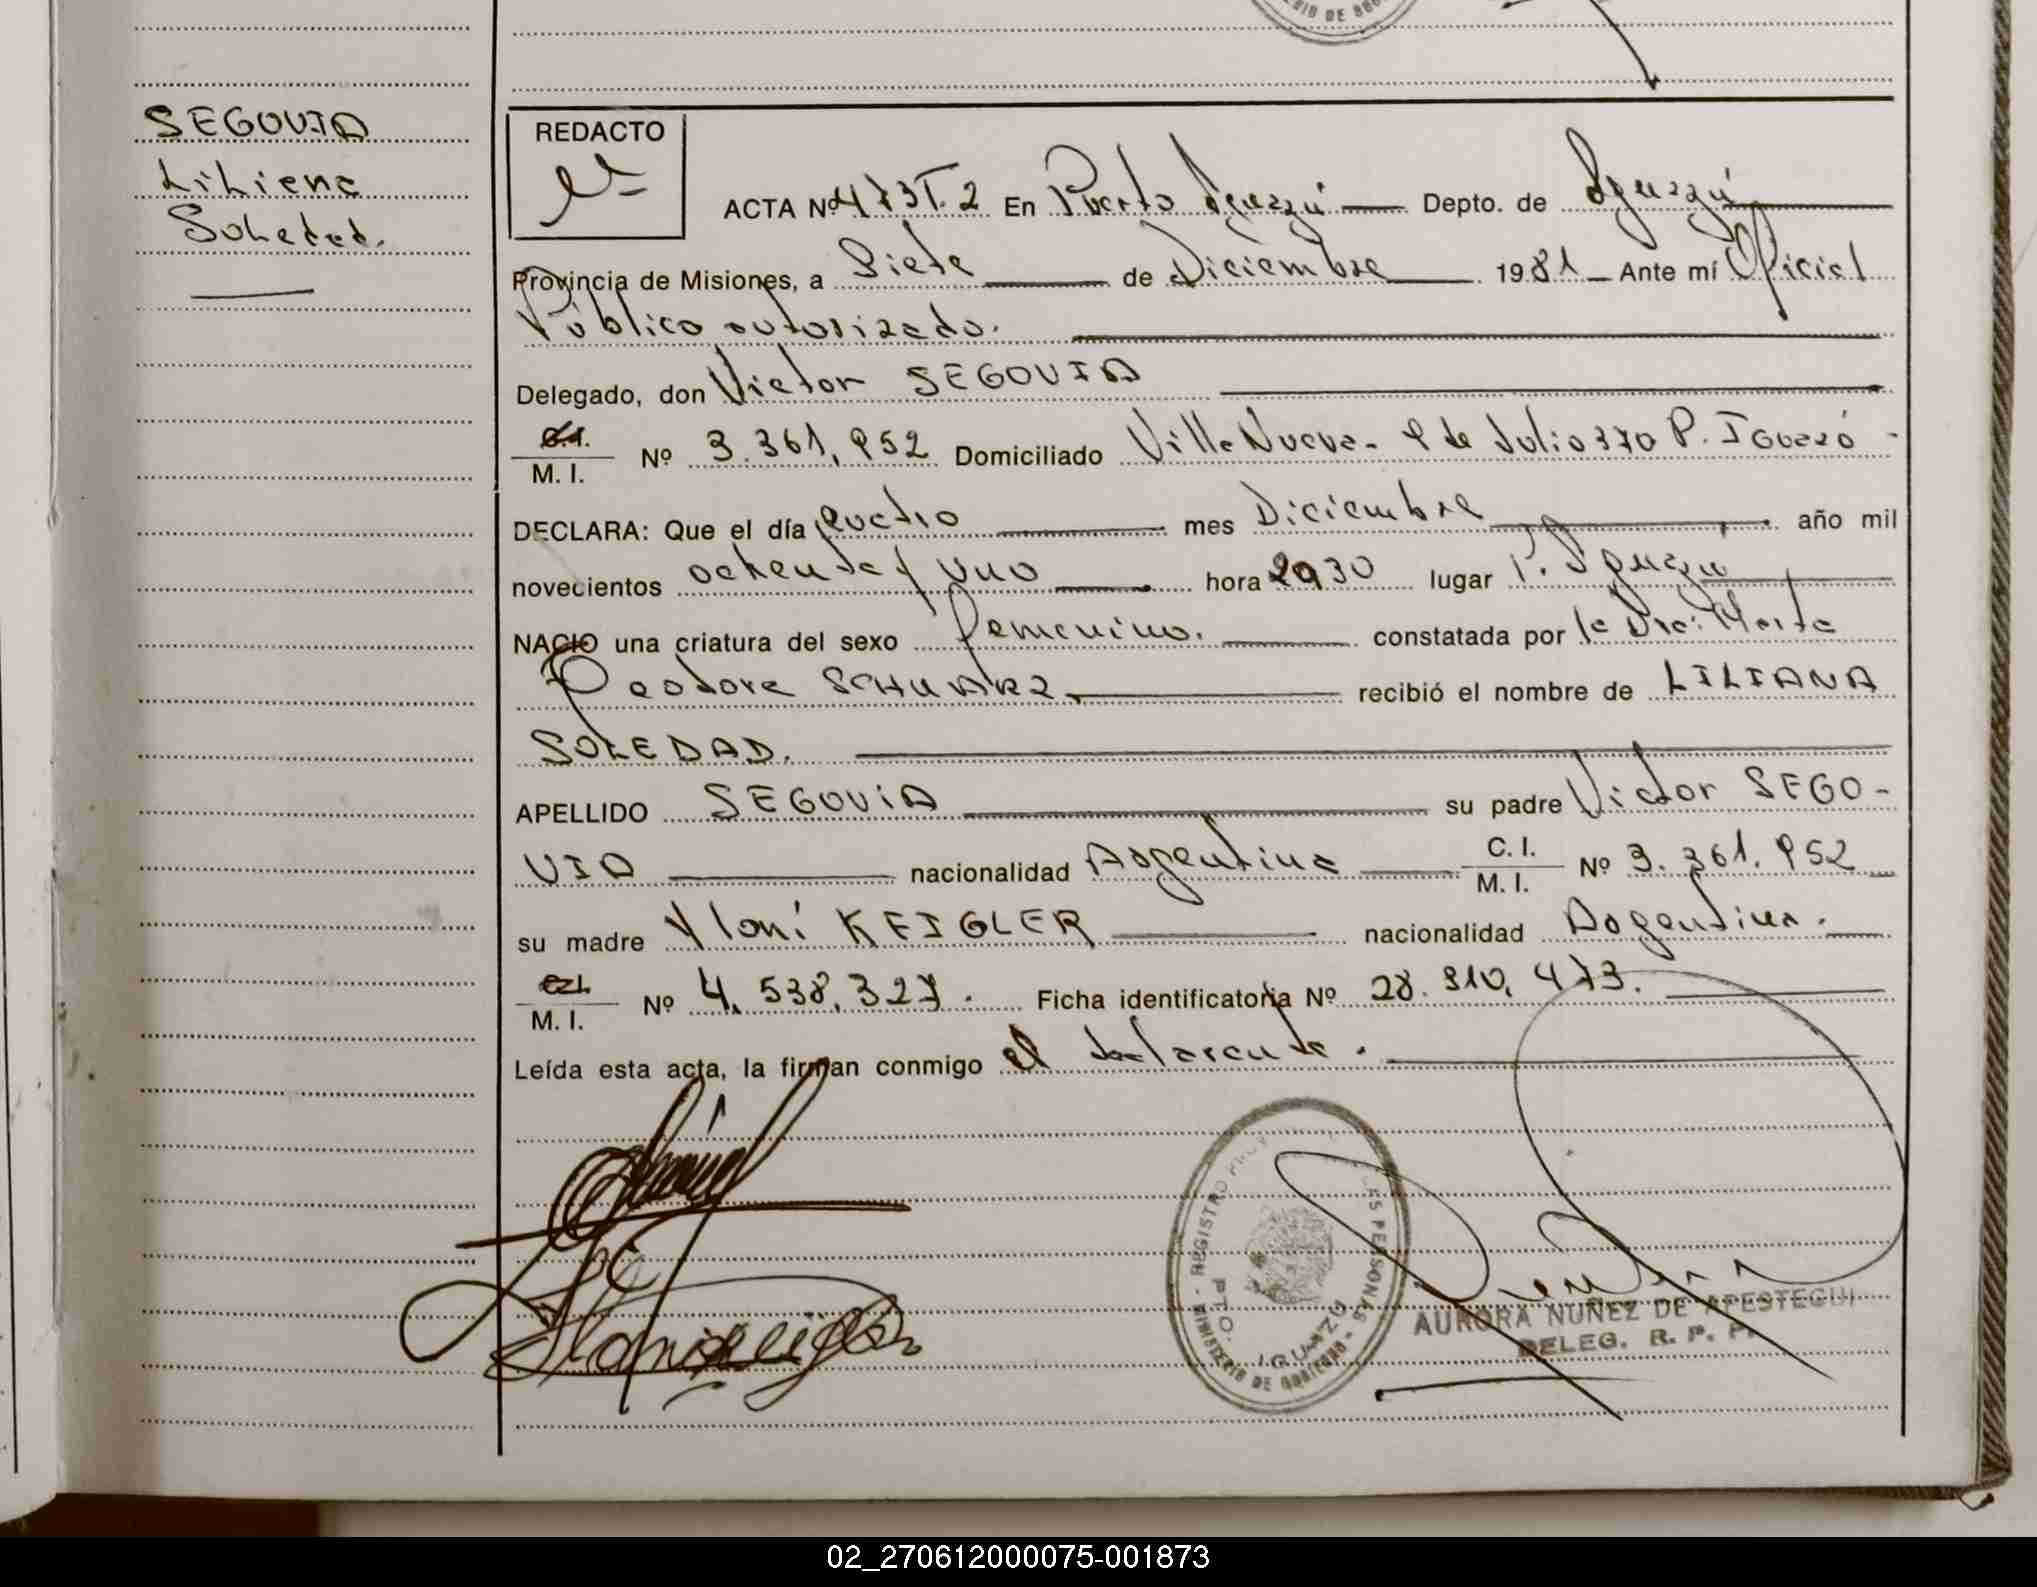 SEGOVIA
Liliana
Soledad.
REDACTO
ACTA Nº 473 T. 2 En Puerto Iguazú Depto. de Iguazú
Provincia de Misiones, a Siete de Diciembre 1981 Ante mí Oficial
Público autorizado.
Delegado, don Victor SEGOVIA
C.I. M. I. Nº 3.361,952 Domiciliado Villa Nueva - 9 de Julio 370 P. Iguazú -
DECLARA: Que el día cuatro mes Diciembre año mil
novecientos ochenta y uno hora 2030 lugar P. Iguazú
NACIO una criatura del sexo femenino. constatada por la Dra: Marta
Teodora SCHUARZ recibió el nombre de LILIANA
SOLEDAD.
APELLIDO SEGOVIA su padre Victor SEGO-
VIA nacionalidad Argentina C. I. M. I. Nº 3.361.952
su madre Yloni KEIGLER nacionalidad Argentina.
C.I. M. I. Nº 4.538.327. Ficha identificatoria Nº 28.810.473.
Leída esta acta, la firman conmigo el declarante.
REGISTRO PERSONAS
MINISTERIO DE GOBIERNO
PTO. IGUAZU
AURORA NUÑEZ DE APESTEGUI
DELEG. R. P. P.
02_270612000075-001873